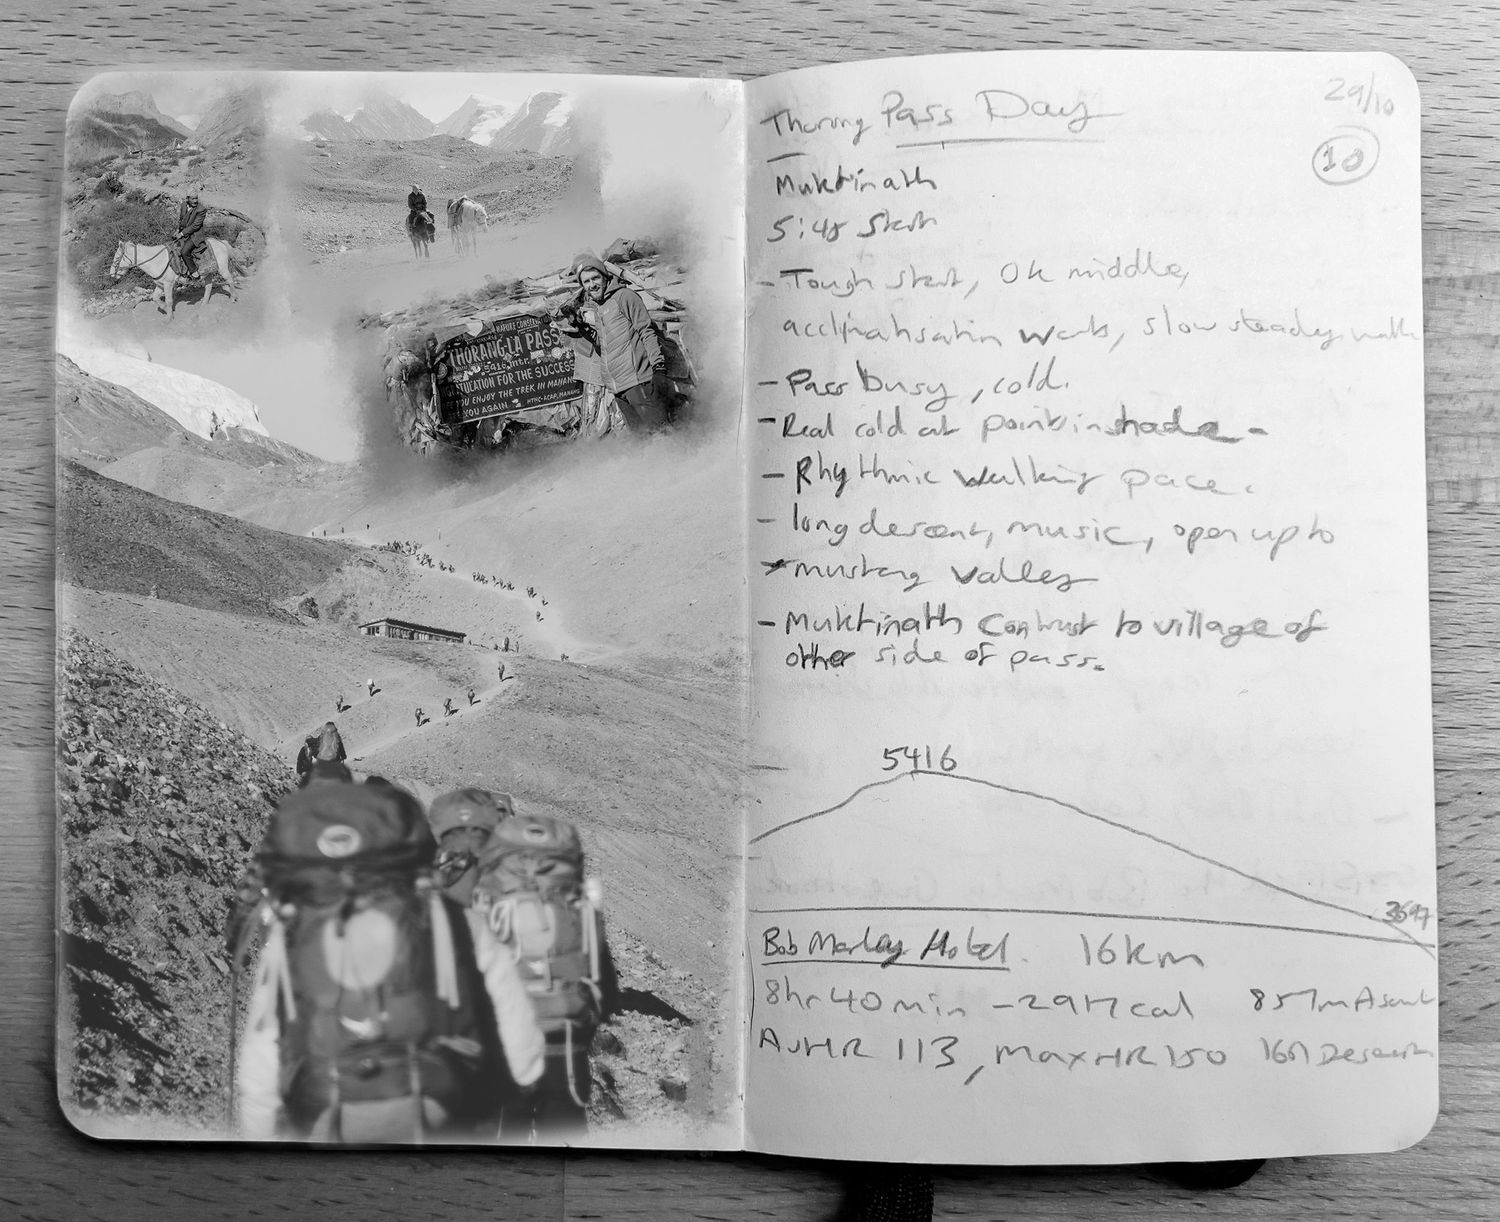 HAPURE CONSERV
THORANG-LA PASS
5416 mtr.
FOR THE SUCCESS
YOU ENJOY THE TREK IN MANANG
YOU AGAIN
NTNC-ACAP, MANANG
29/10
Thorong Pass Day
10
Muktinath
5:48 Start
- Tough start, Ok middle,
acclimatisation works, slow steady walk
- Pass busy, cold.
- Real cold at points in shade -
- Rhythmic walking pace.
- long descent, music, open up to
mustang valley
- Muktinath Contrast to village of
other side of pass.
5416
Bob Marley Hotel. 16km
8hr 40min - 2917 cal 857m Ascent
Av HR 113, max HR 150 Descent